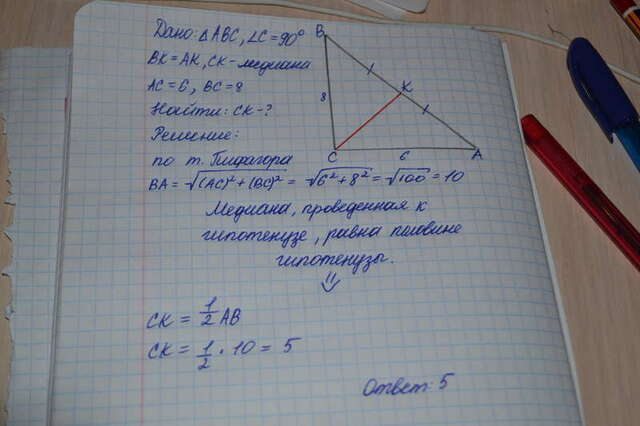 Дано: △ABC, ∠C=90°
BK=AK, CK-медиана
AC=6, BC=8
Найти: CK-?
Решение:
по т. Пифагора
BA = √(AC)²+(BC)² = √6²+8² = √100 = 10
Медиана, проведенная к
гипотенузе, равна половине
гипотенузы.
⇓
CK = 1/2 AB
CK = 1/2 · 10 = 5
Ответ: 5
B
K
8
C
6
A